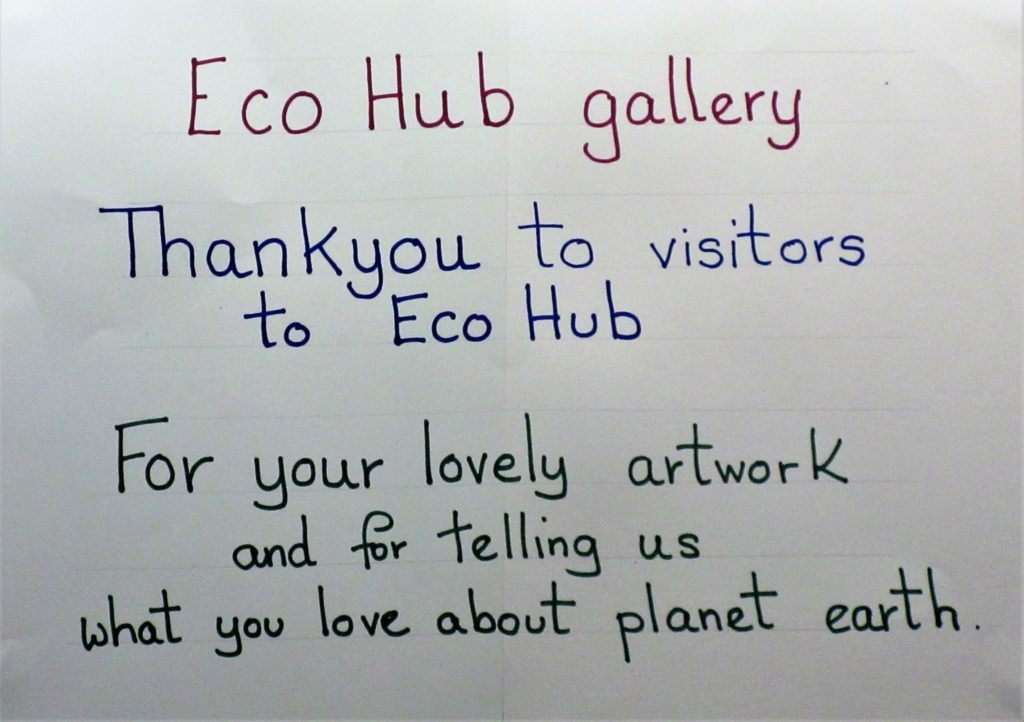 Eco Hub gallery
Thankyou to visitors
to Eco Hub
For your lovely artwork
and for telling us
what you love about planet earth.